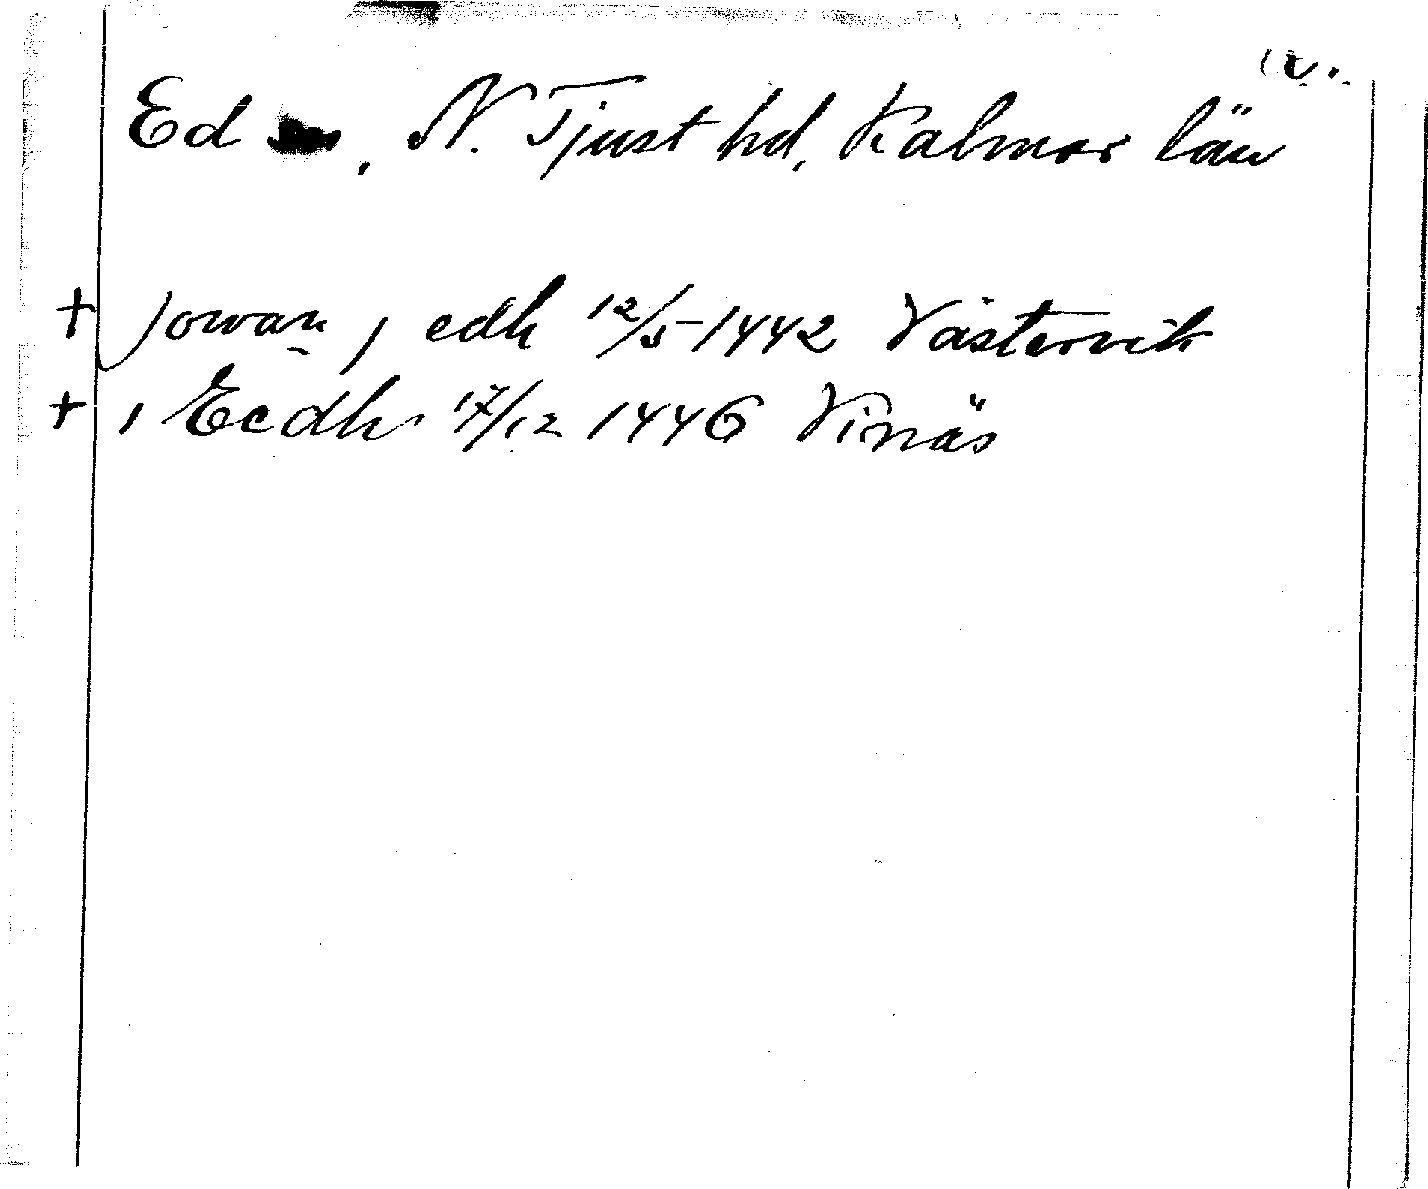 Ed, N. Tjust hd, Kalmar län
+ jowan, i edh 12/5 1442 Västervik
+ i Eedh 17/12 1446 Vinäs